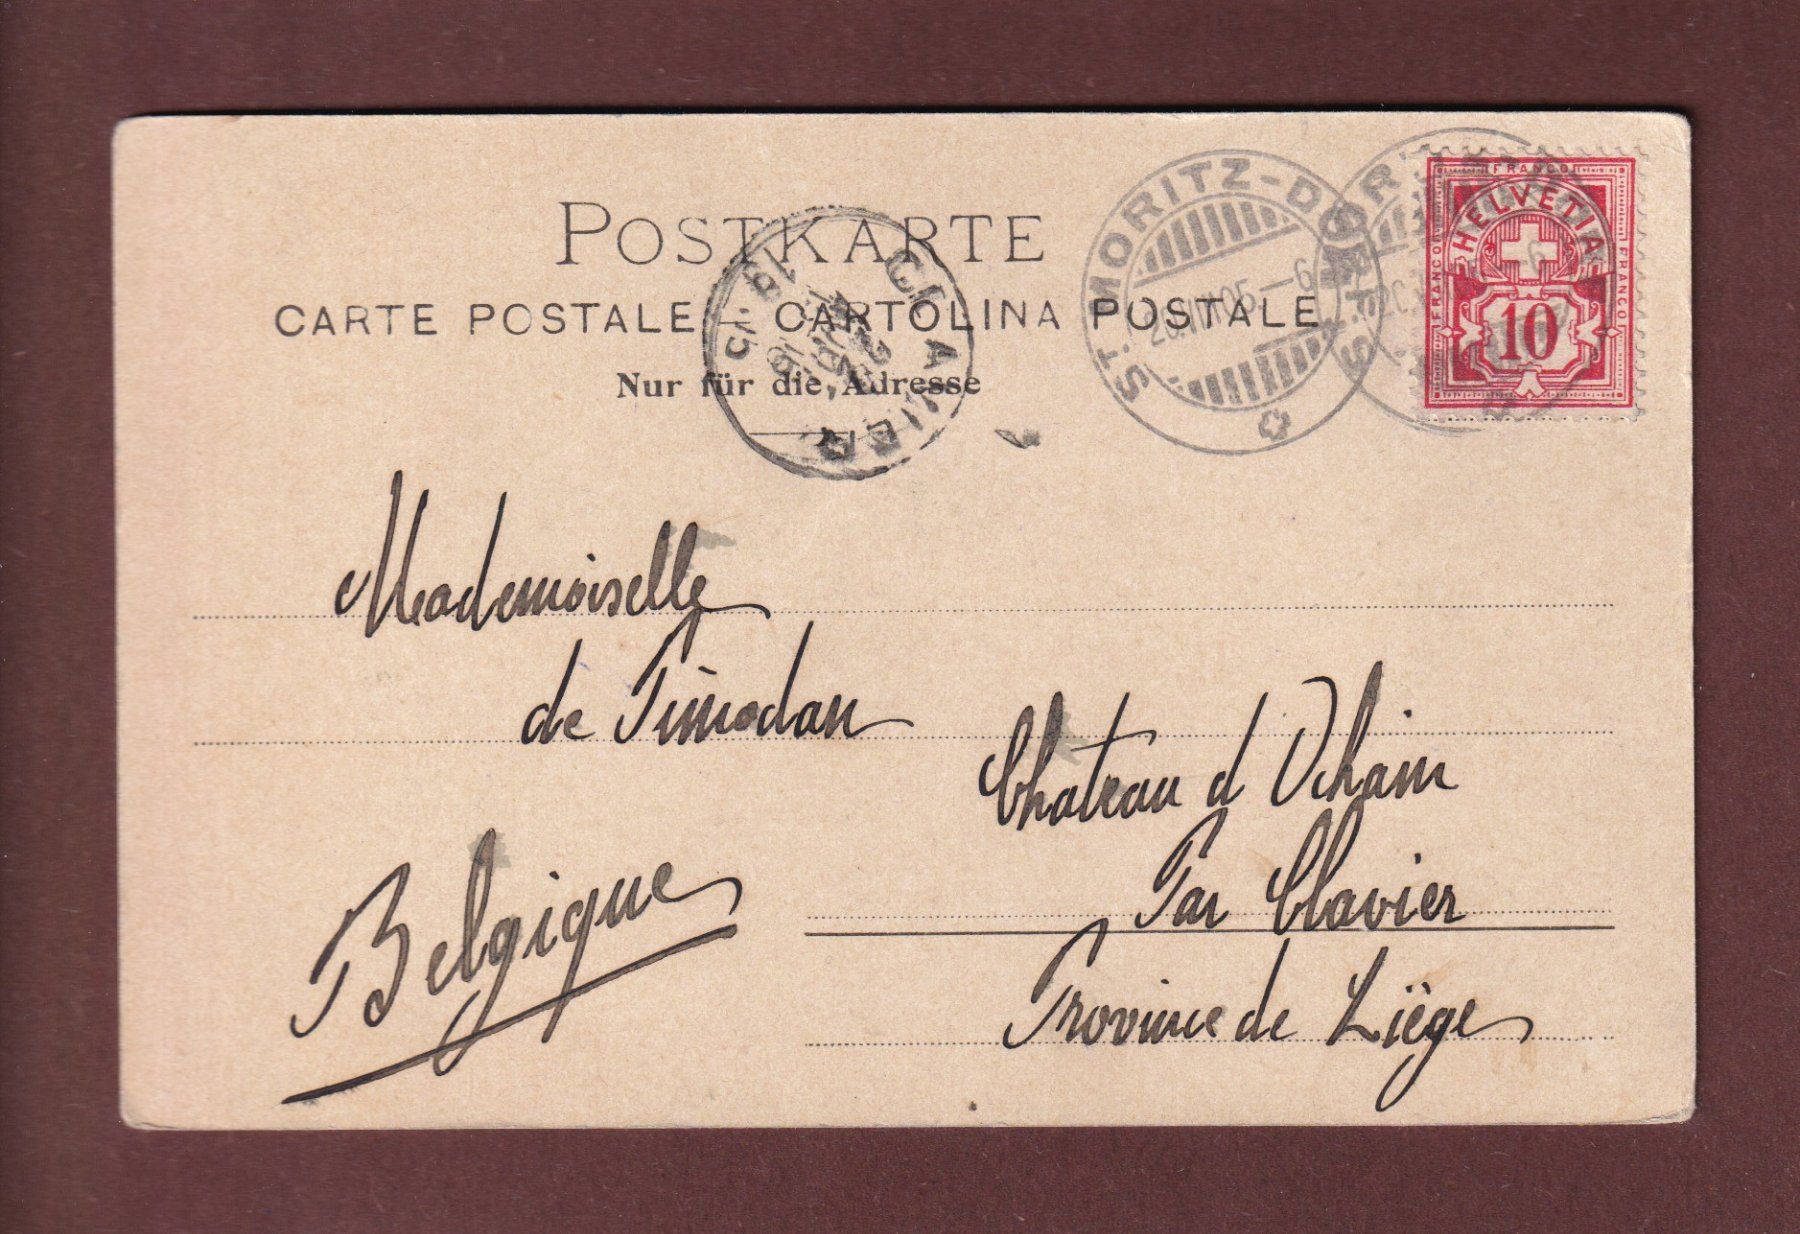 POSTKARTE
CARTE POSTALE — CARTOLINA POSTALE
Nur für die Adresse
CLAVIER
ST. MORITZ-DORF
FRANCO
FRANCO
FRANCO
HELVETIA
10
Mademoiselle
de Pimodan
Chateau d Ochain
Par Clavier
Province de Liège
Belgique